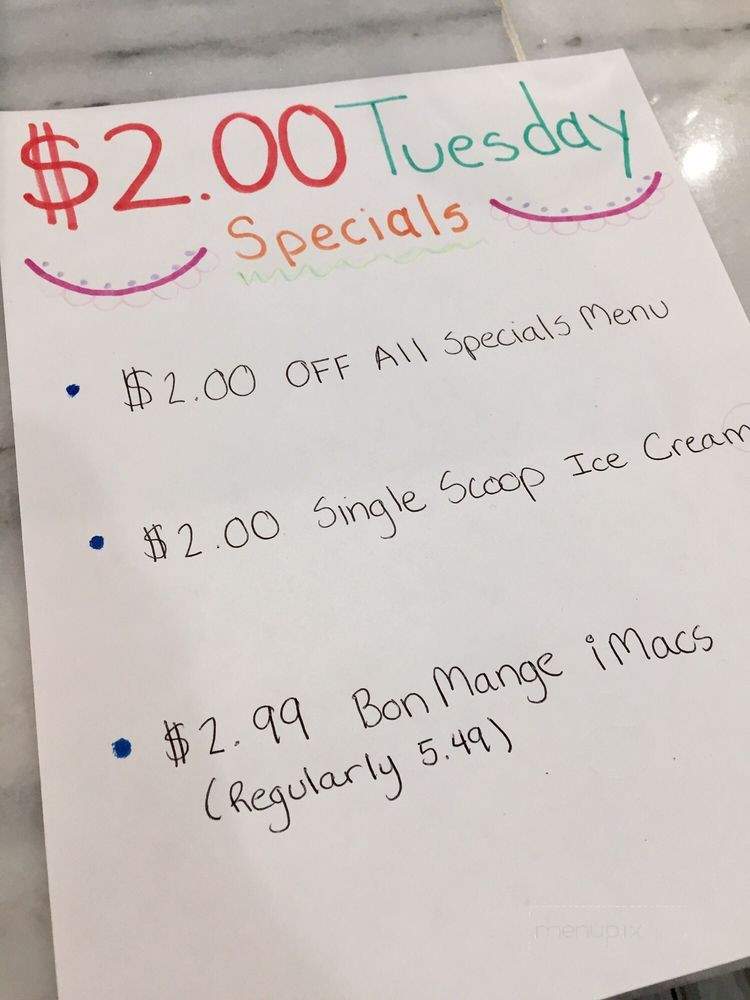 $2.00 Tuesday
Specials
• $2.00 OFF All Specials Menu
• $2.00 Single Scoop Ice Cream
• $2.99 Bon Mange iMacs
(Regularly 5.49)
menupix